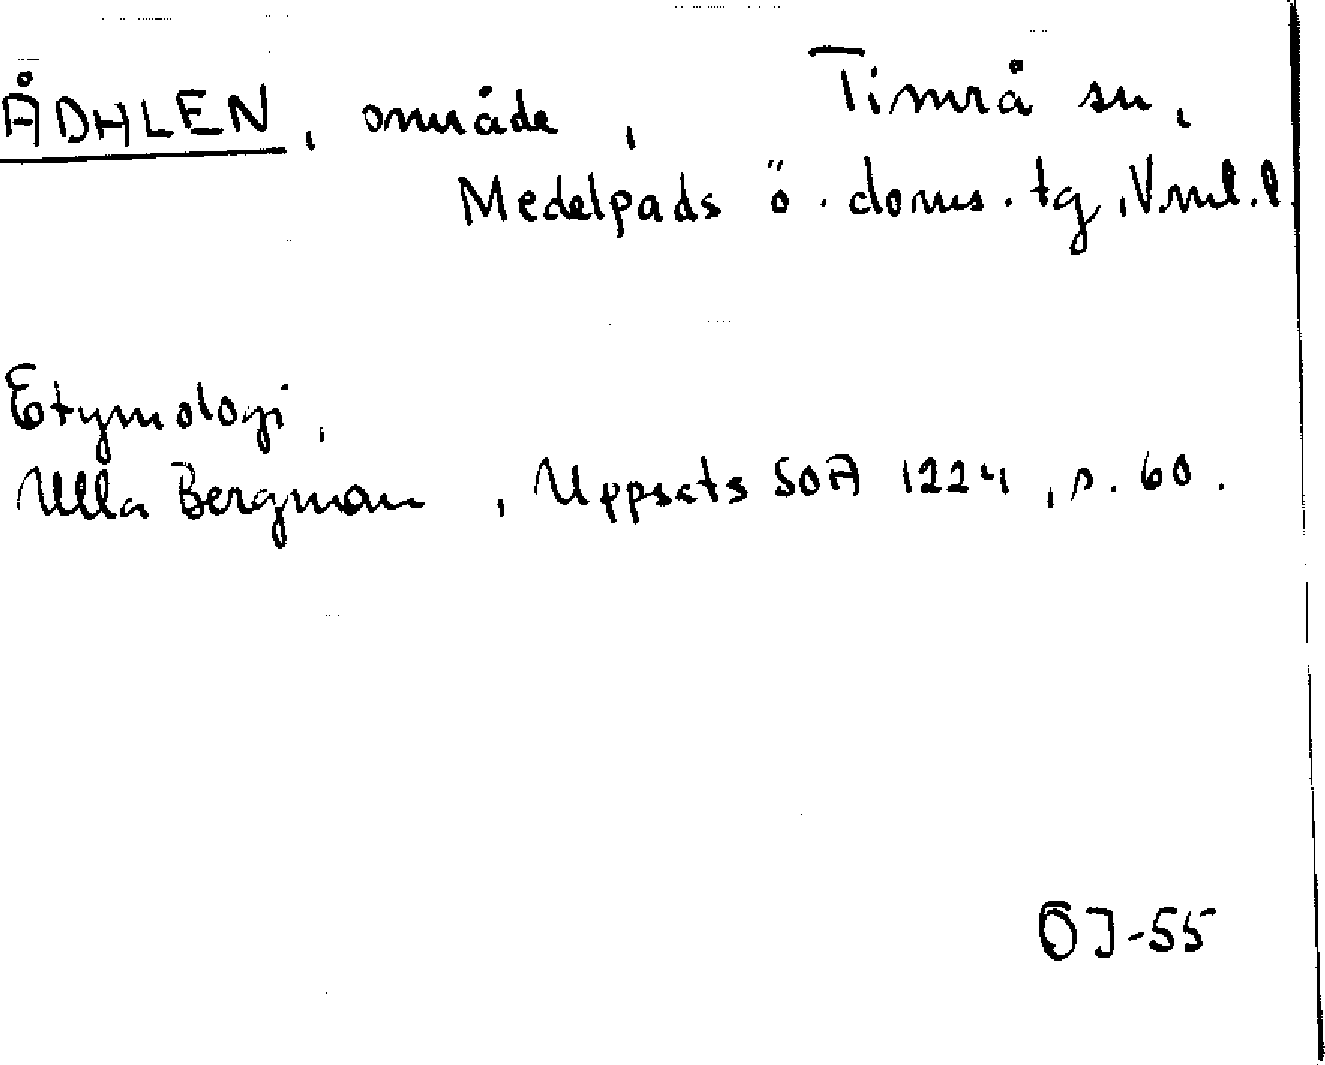 ÅDHLEN, område, Timrå sn,
Medelpads ö. doms. tg, Vnl. l.
Etymologi,
Ulla Bergman, Uppsats SOA 1224, s. 60.
ÖJ-55